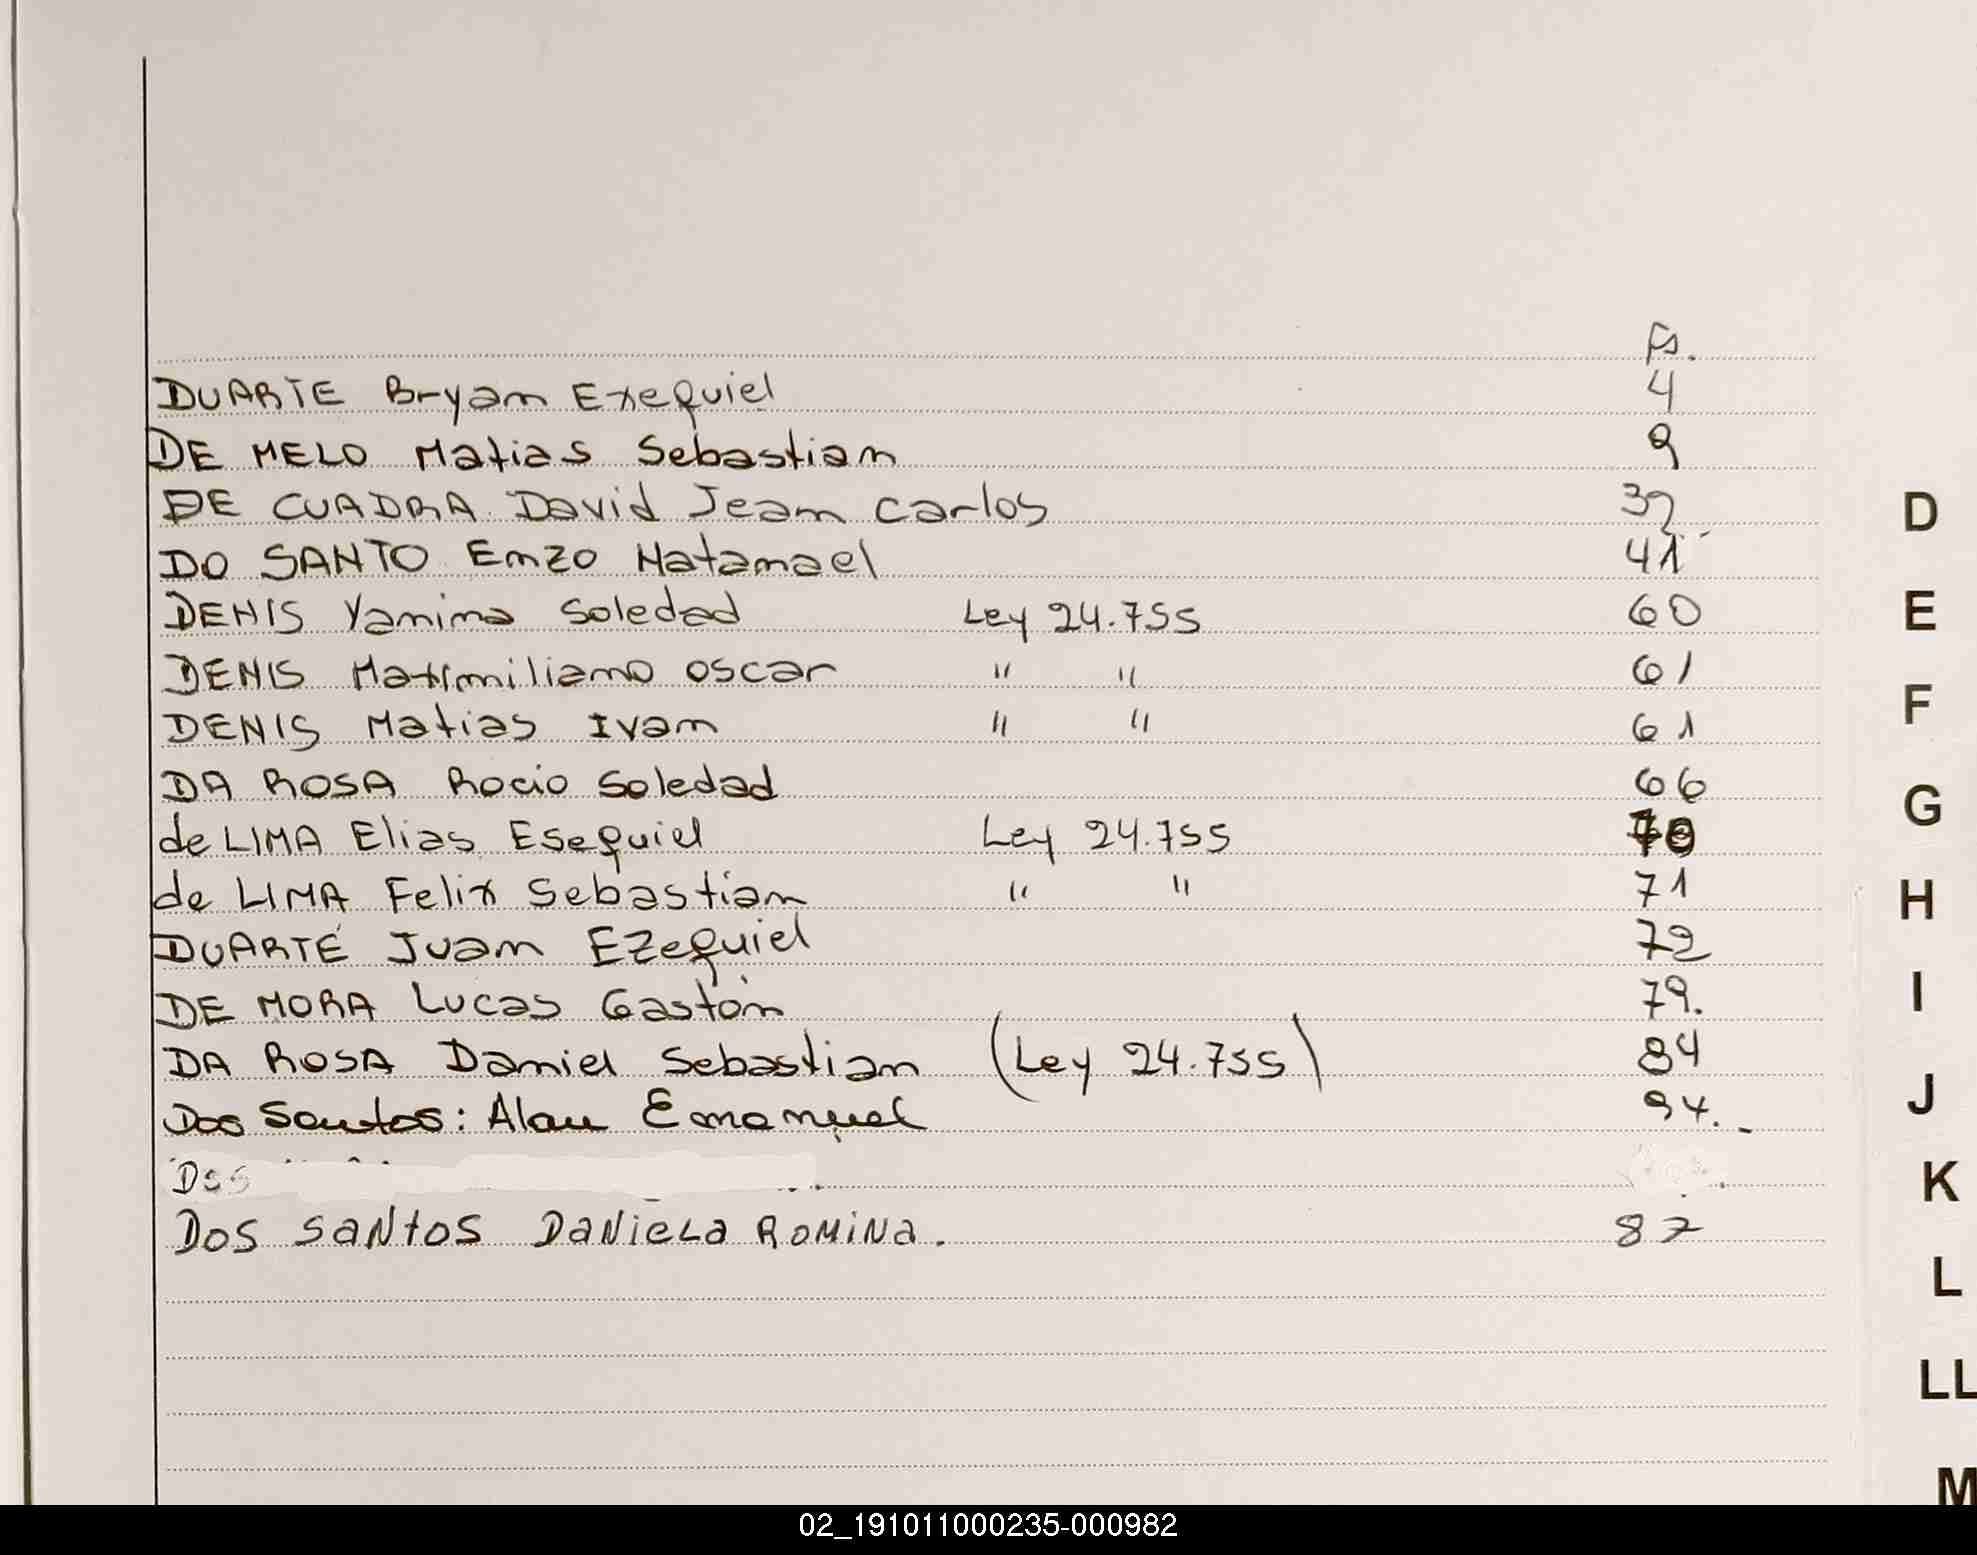 Fs.
DUARTE Bryam Exequiel 4
DE MELO Matias Sebastian 9
DE CUADRA David Jean Carlos 39
DO SANTO Enzo Natanael 41
DENIS Yanina Soledad Ley 24.755 60
DENIS Maximiliano Oscar " " 61
DENIS Matias Ivan " " 61
DA ROSA Rocio Soledad 66
de LIMA Elias Esequiel Ley 24.755 70
de LIMA Felix Sebastian " " 71
DUARTE Juan Ezequiel 72
DE MORA Lucas Gastón 79.
DA ROSA Daniel Sebastian (Ley 24.755) 84
Dos Santos: Alan Emanuel 94.
DOS SANTOS DANIELA ROMINA. 87
D
E
F
G
H
I
J
K
L
LL
M
02_191011000235-000982